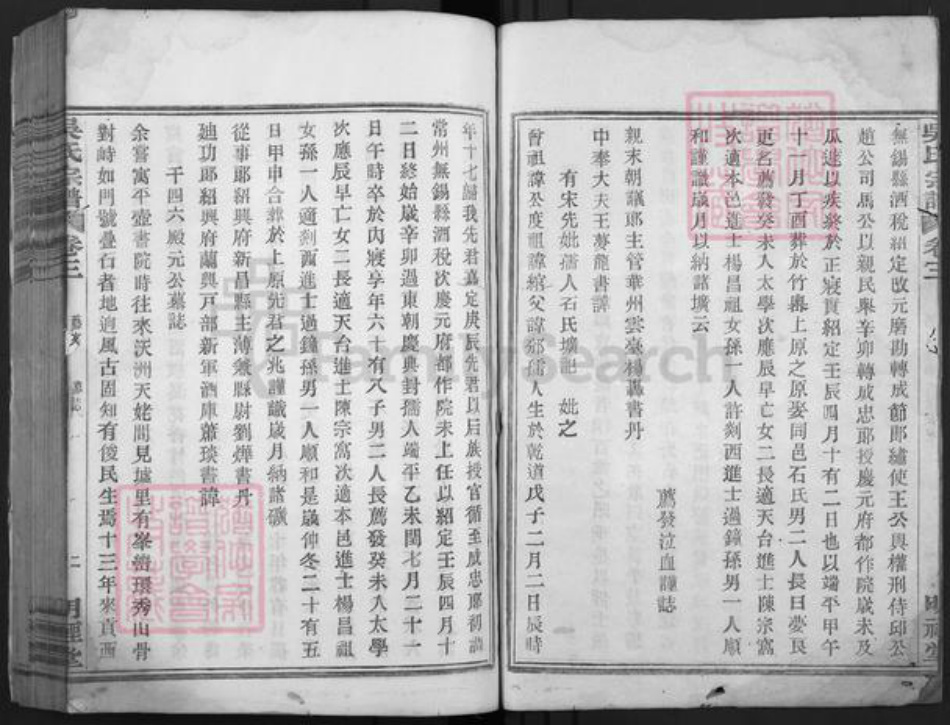 無錫縣酒稅紹定改元磨勘轉成節郎繡使王公與權刑侍邱公
趙公司馬公以親民舉辛卯轉成忠郎授慶元府都作院歲未及
瓜遽以疾終於正寢實紹定壬辰四月十有二日也以端平甲午
十一月丁酉葬於竹嶴上原之原娶同邑石氏男二人長曰夢良
更名薦發癸未入太學次應辰早亡女二長適天台進士陳宗寓
次適本邑進士楊昌祖女孫一人許剡西進士過鐘孫男一人順
和謹識歲月以納諸壙云
薦發泣血謹誌
親末朝議郎主管華州雲臺楊轟書丹
中奉大夫王夢龍書諱
有宋先妣孺人石氏壙記 妣之
曾祖諱公度祖諱綰父諱鄒孺人生於乾道戊子二月二日辰時
年十七歸我先君嘉定庚辰先君以后族授官循至成忠郎初調
常州無錫縣酒稅次慶元府都作院未上任以紹定壬辰四月十
二日終始歲辛卯過東朝慶典封孺人端平乙未閏七月二十一
日午時卒於內寢享年六十有八子男二人長薦發癸未入太學
次應辰早亡女二長適天台進士陳宗寓次適本邑進士楊昌祖
女孫一人適剡西進士過鐘孫男一人順和是歲仲冬二十有五
日甲申合葬於上原先君之兆謹識歲月納諸礦
從事郎紹興府新昌縣主薄兼縣尉劉燁書丹
廸功郎紹興府蘭興戶部新軍酒庫蕭琰書諱
千四六殿元公墓誌
余嘗寓平壺書院時往來沃洲天姥間見墟里有峯巒環秀山骨
對峙如門號疊石者地逈風古固知有俊民生焉十三年來貢西
吳氏宗譜
卷三
二
明禋堂
吳氏宗譜
卷三